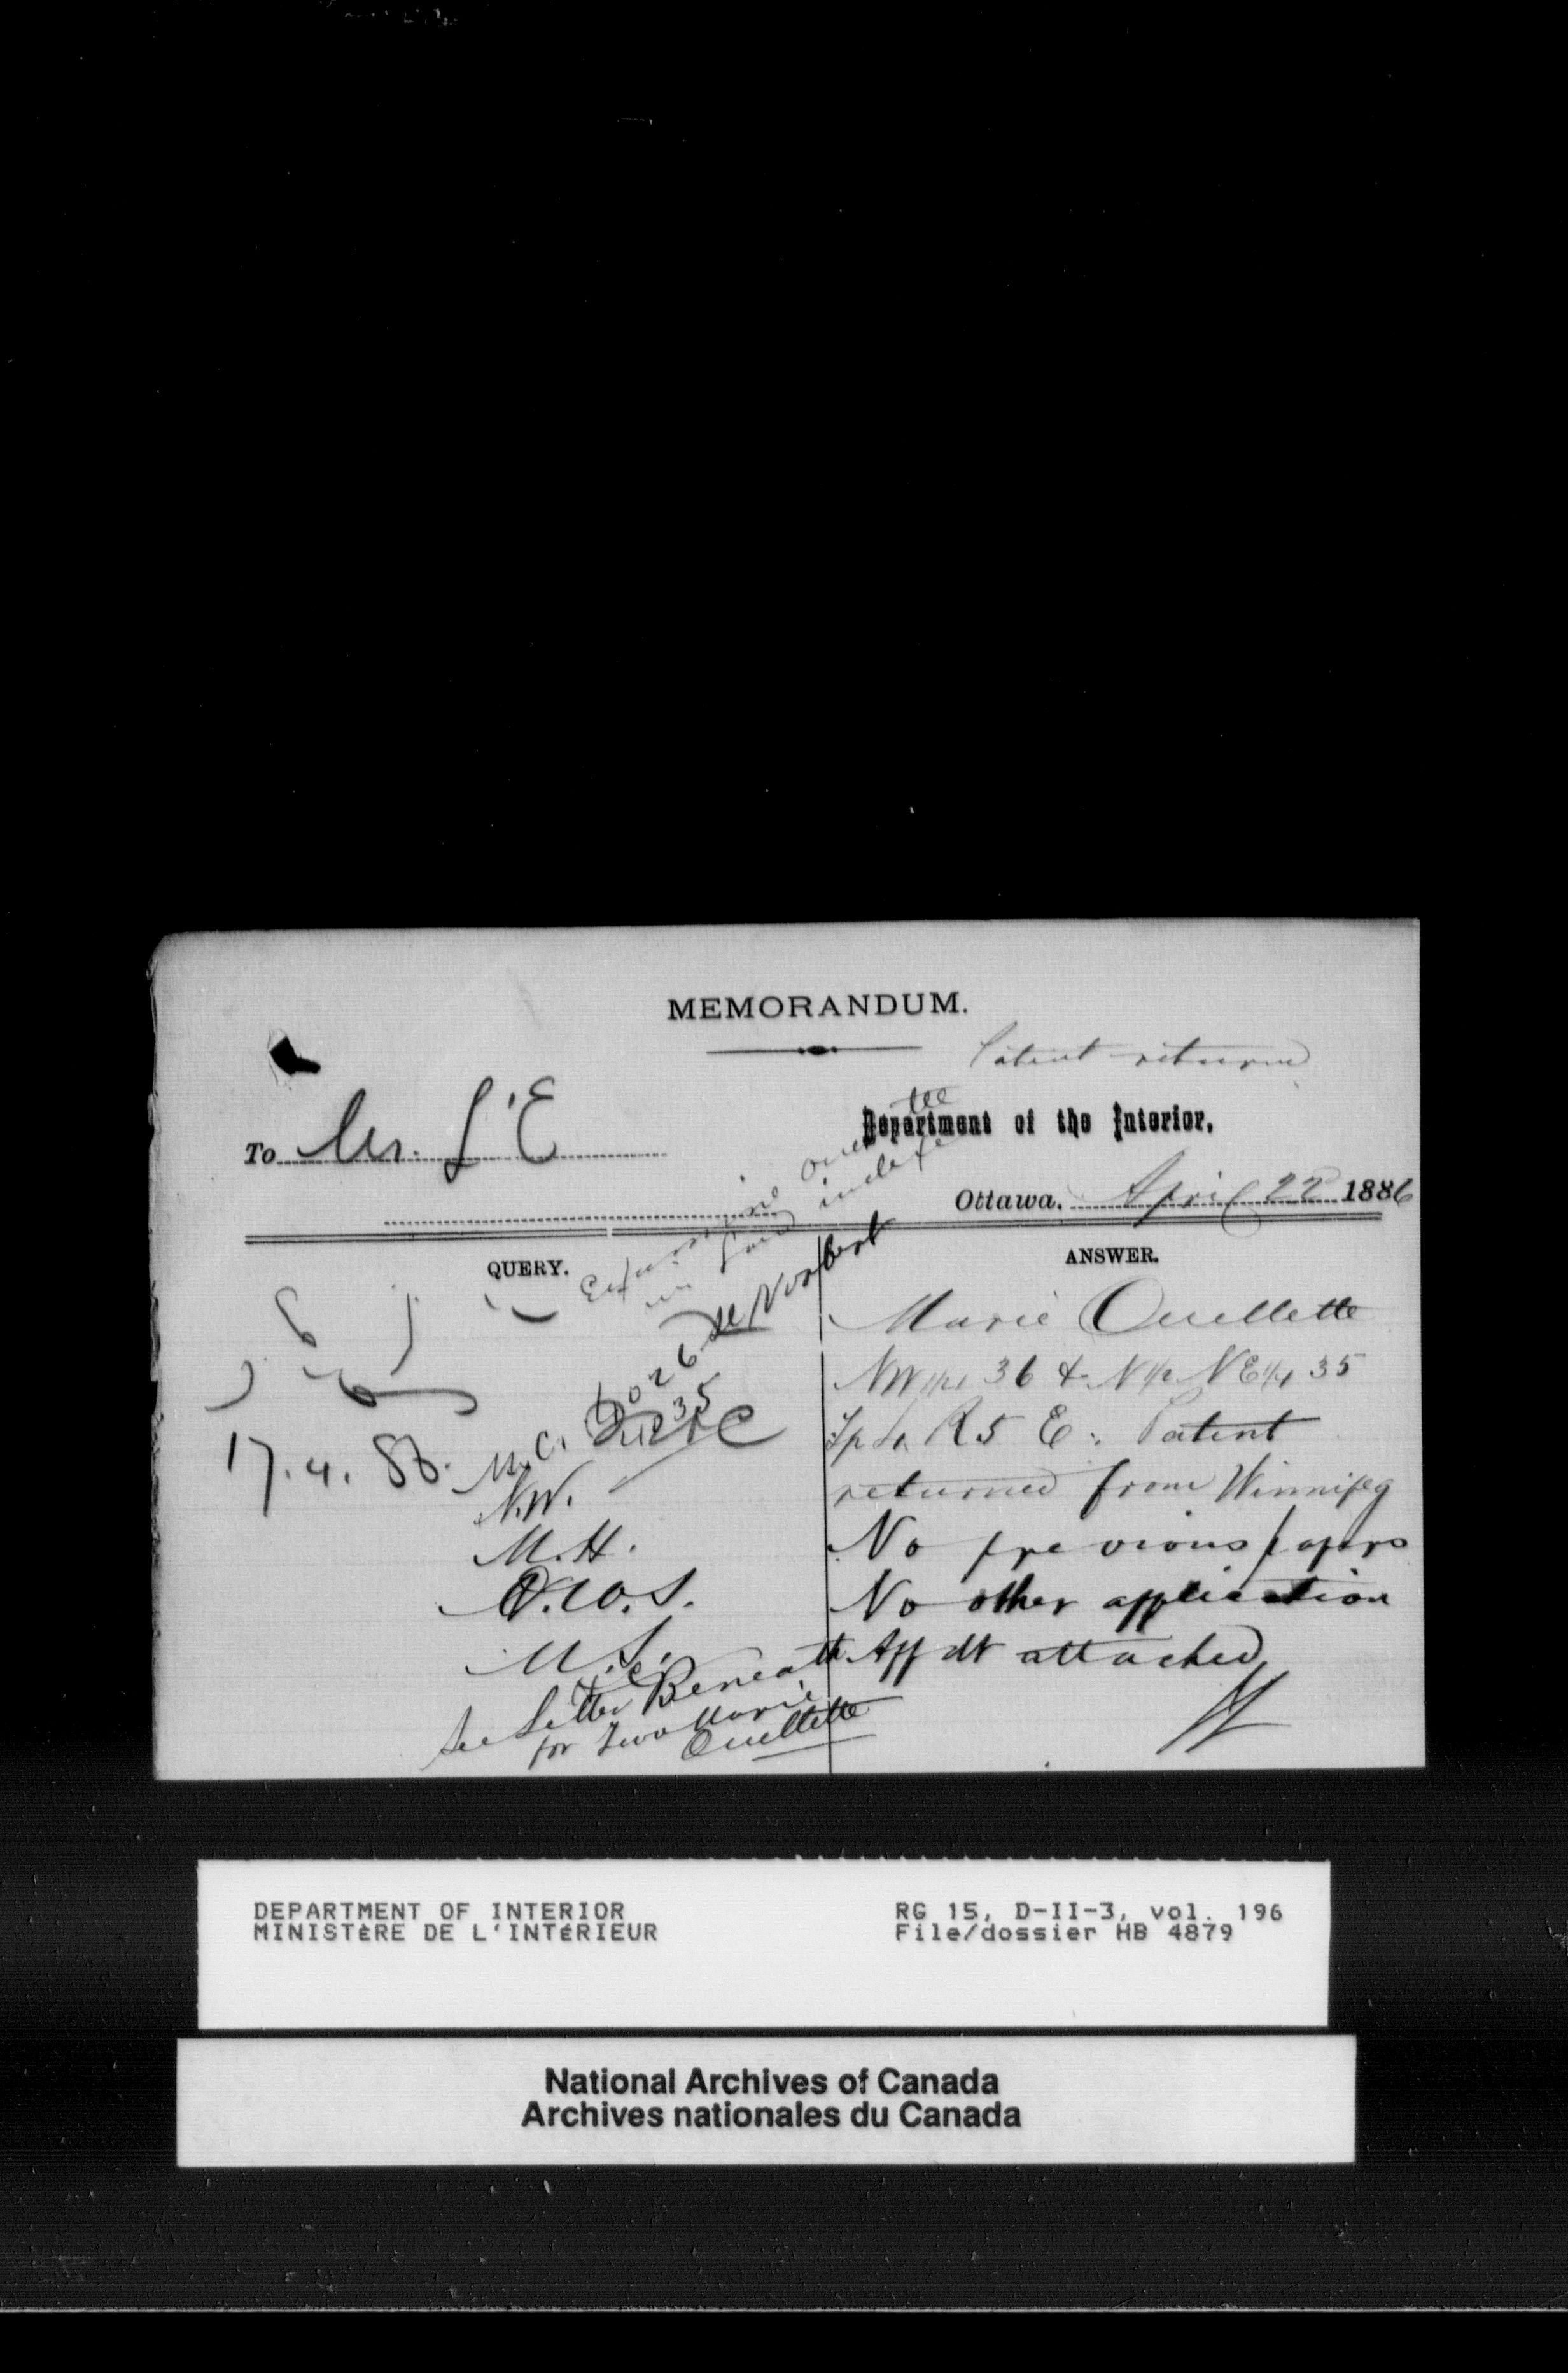 MEMORANDUM.
Patent returned
To Mr. L'E
Department of the Interior.
Ottawa. April 22 1886
QUERY.
ANSWER.
St Norbert
17.4.86.
M.C.
N.W.
M.H.
O.W.S.
M.S.
See Letter Beneath
for two Marie
Ouellette
Marie Ouellette
NW 1/4 36 & N 1/2 NE 1/4 35
R 5 E. Patent
returned from Winnipeg
No previous papers
No other application
attached
DEPARTMENT OF INTERIOR
MINISTÈRE DE L'INTÉRIEUR
RG 15, D-II-3, vol. 196
File/dossier HB 4879
National Archives of Canada
Archives nationales du Canada